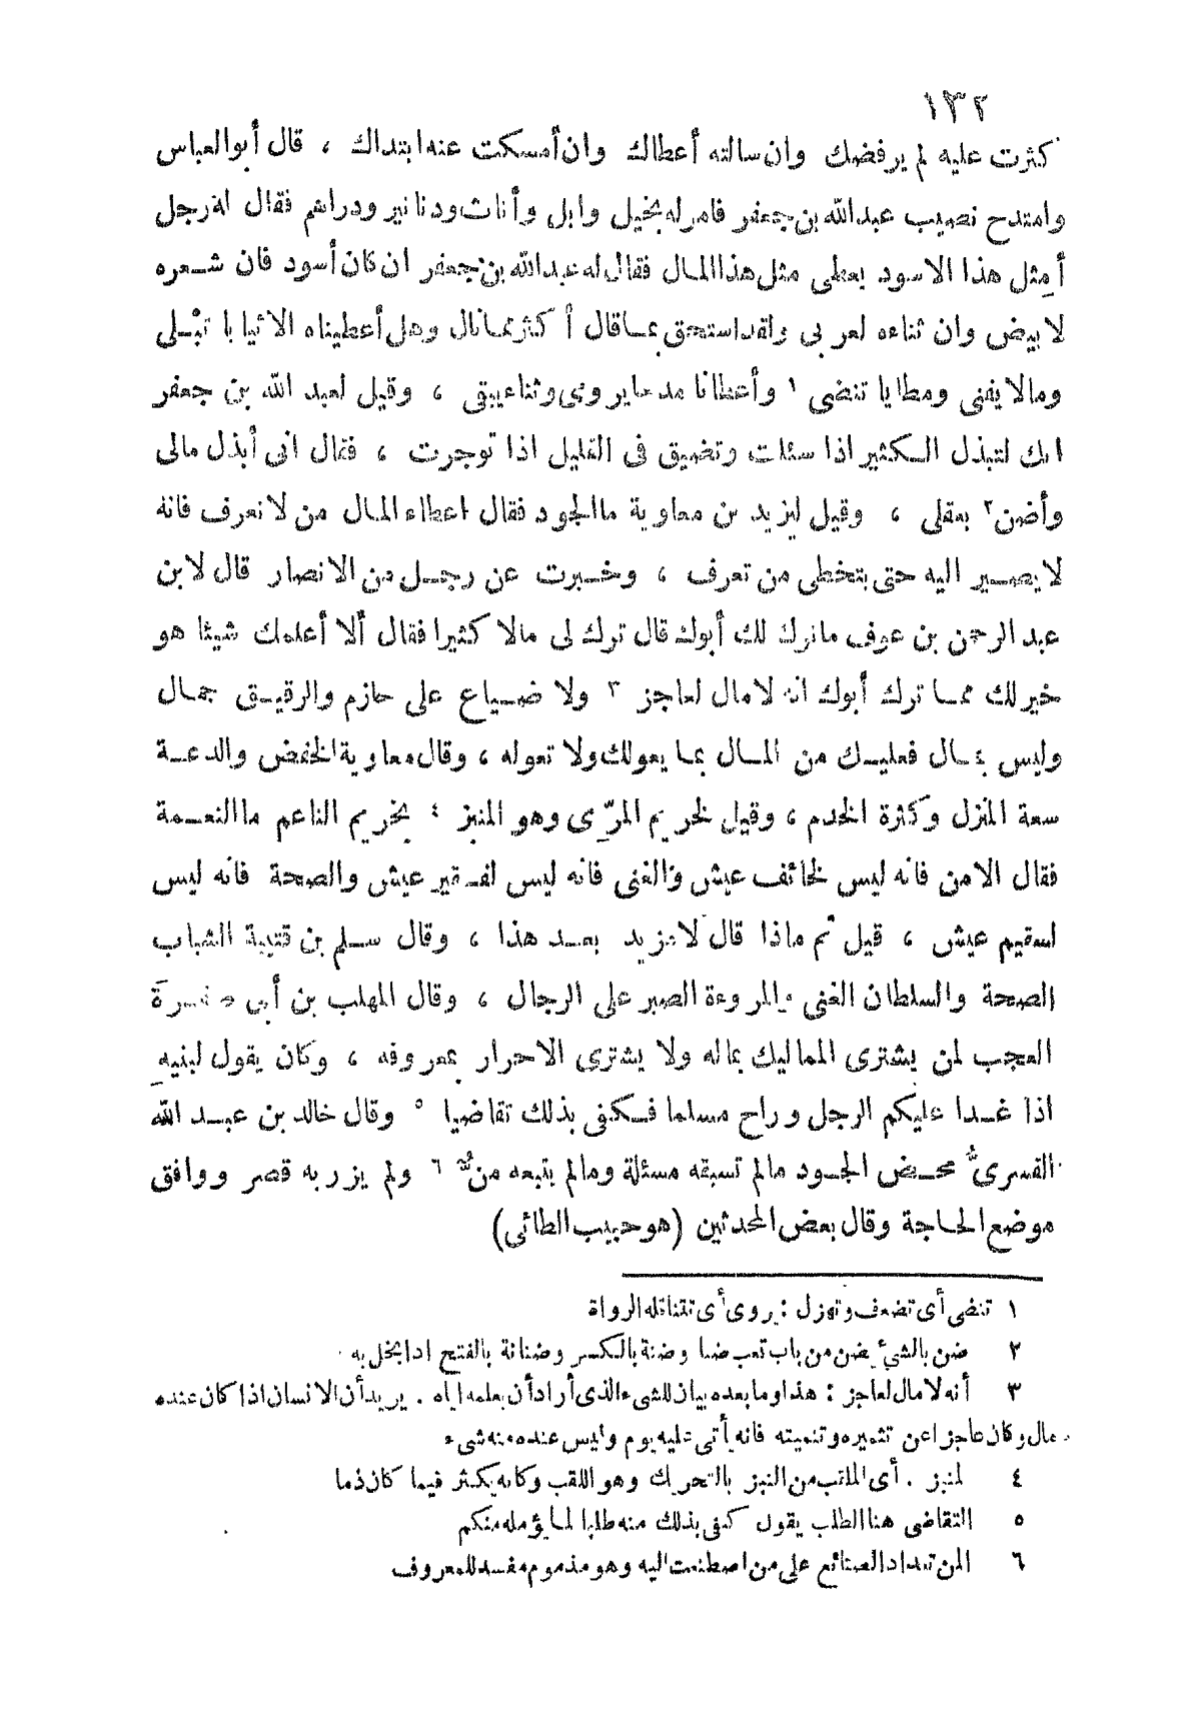 ١٣٢
كثرت عليه لم يرفضك وان سالته أعطاك وان أمسكت عنه ابتداك ، قال أبوالعباس
وامتدح نصيب عبدالله بن جعفر فامر له بخيل وابل وأثاث ودنانير ودراهم فقال له رجل
أمِثل هذا الاسود يعطى مثل هذا المال فقال له عبدالله بن جعفر ان كان أسود فان شعره
لابيض وان ثناءه لعربى ولقد استحق بما قال أكثر مما نال وهل أعطيناه الا ثيابا تبْلى
ومالا يفنى ومطايا تنضى ١ وأعطانا مدحا يروى وثناء يبقى ، وقيل لعبد الله بن جعفر
انك لتبذل الكثير اذا سئلت وتضيق فى القليل اذا توجرت ، فقال انى أبذل مالى
وأضن ٢ بعقلى ، وقيل ليزيد بن معاوية ما الجود فقال اعطاء المال من لا تعرف فانه
لا يصير اليه حتى يتخطى من تعرف ، وخبرت عن رجل من الانصار قال لابن
عبد الرحمن بن عوف ما ترك لك أبوك قال ترك لى مالا كثيرا فقال ألا أعلمك شيئا هو
خير لك مما ترك أبوك انه لا مال لعاجز ٣ ولا ضياع على حازم والرقيق جمال
وليس بمال فعليك من المال بما يعولك ولا تعوله ، وقال معاوية الخفض والدعة
سعة المنزل وكثرة الخدم ، وقيل لخريم المرّى وهو المنبز ٤ بخريم الناعم ما النعمة
فقال الامن فانه ليس لخائف عيش والغنى فانه ليس لفقير عيش والصحة فانه ليس
لسقيم عيش ، قيل ثم ماذا قال لا مزيد بعد هذا ، وقال سلم بن قتيبة الشباب
الصحة والسلطان الغنى والمروءة الصبر على الرجال ، وقال المهلب بن أبى صفرة
العجب لمن يشترى المماليك بماله ولا يشترى الاحرار بمعروفه ، وكان يقول لبنيهِ
اذا غدا عليكم الرجل وراح مسلما فكفى بذلك تقاضيا ٥ وقال خالد بن عبد الله
القسرىُّ محض الجود مالم تسبقه مسئلة ومالم يتبعه منٌّ ٦ ولم يزر به قصر ووافق
موضع الحاجة وقال بعض المحدثين (هو حبيب الطائى)
١ تنضى أى تضعف وتهزل : يروى أى تتناقله الرواة
٢ ضن بالشئ يضن من باب تعب ضنا وضنة بالكسر وضنانة بالفتح اذا بخل به
٣ أنه لا مال لعاجز : هذا وما بعده بيان للشىء الذى أراد أن يعلمه اياه . يريد أن الانسان اذا كان عنده
مال وكان عاجزا عن تثميره وتنميته فانه يأتى عليه يوم وليس عنده منه شىء
٤ لمنبز . أى الملقب من النبز بالتحريك وهو اللقب وكانه يكثر فيما كان ذما
٥ التقاضى هنا الطلب يقول كفى بذلك منه طلبا لما يؤمله منكم
٦ المن تعداد الصنائع على من اصطنعت اليه وهو مذموم مفسد للمعروف